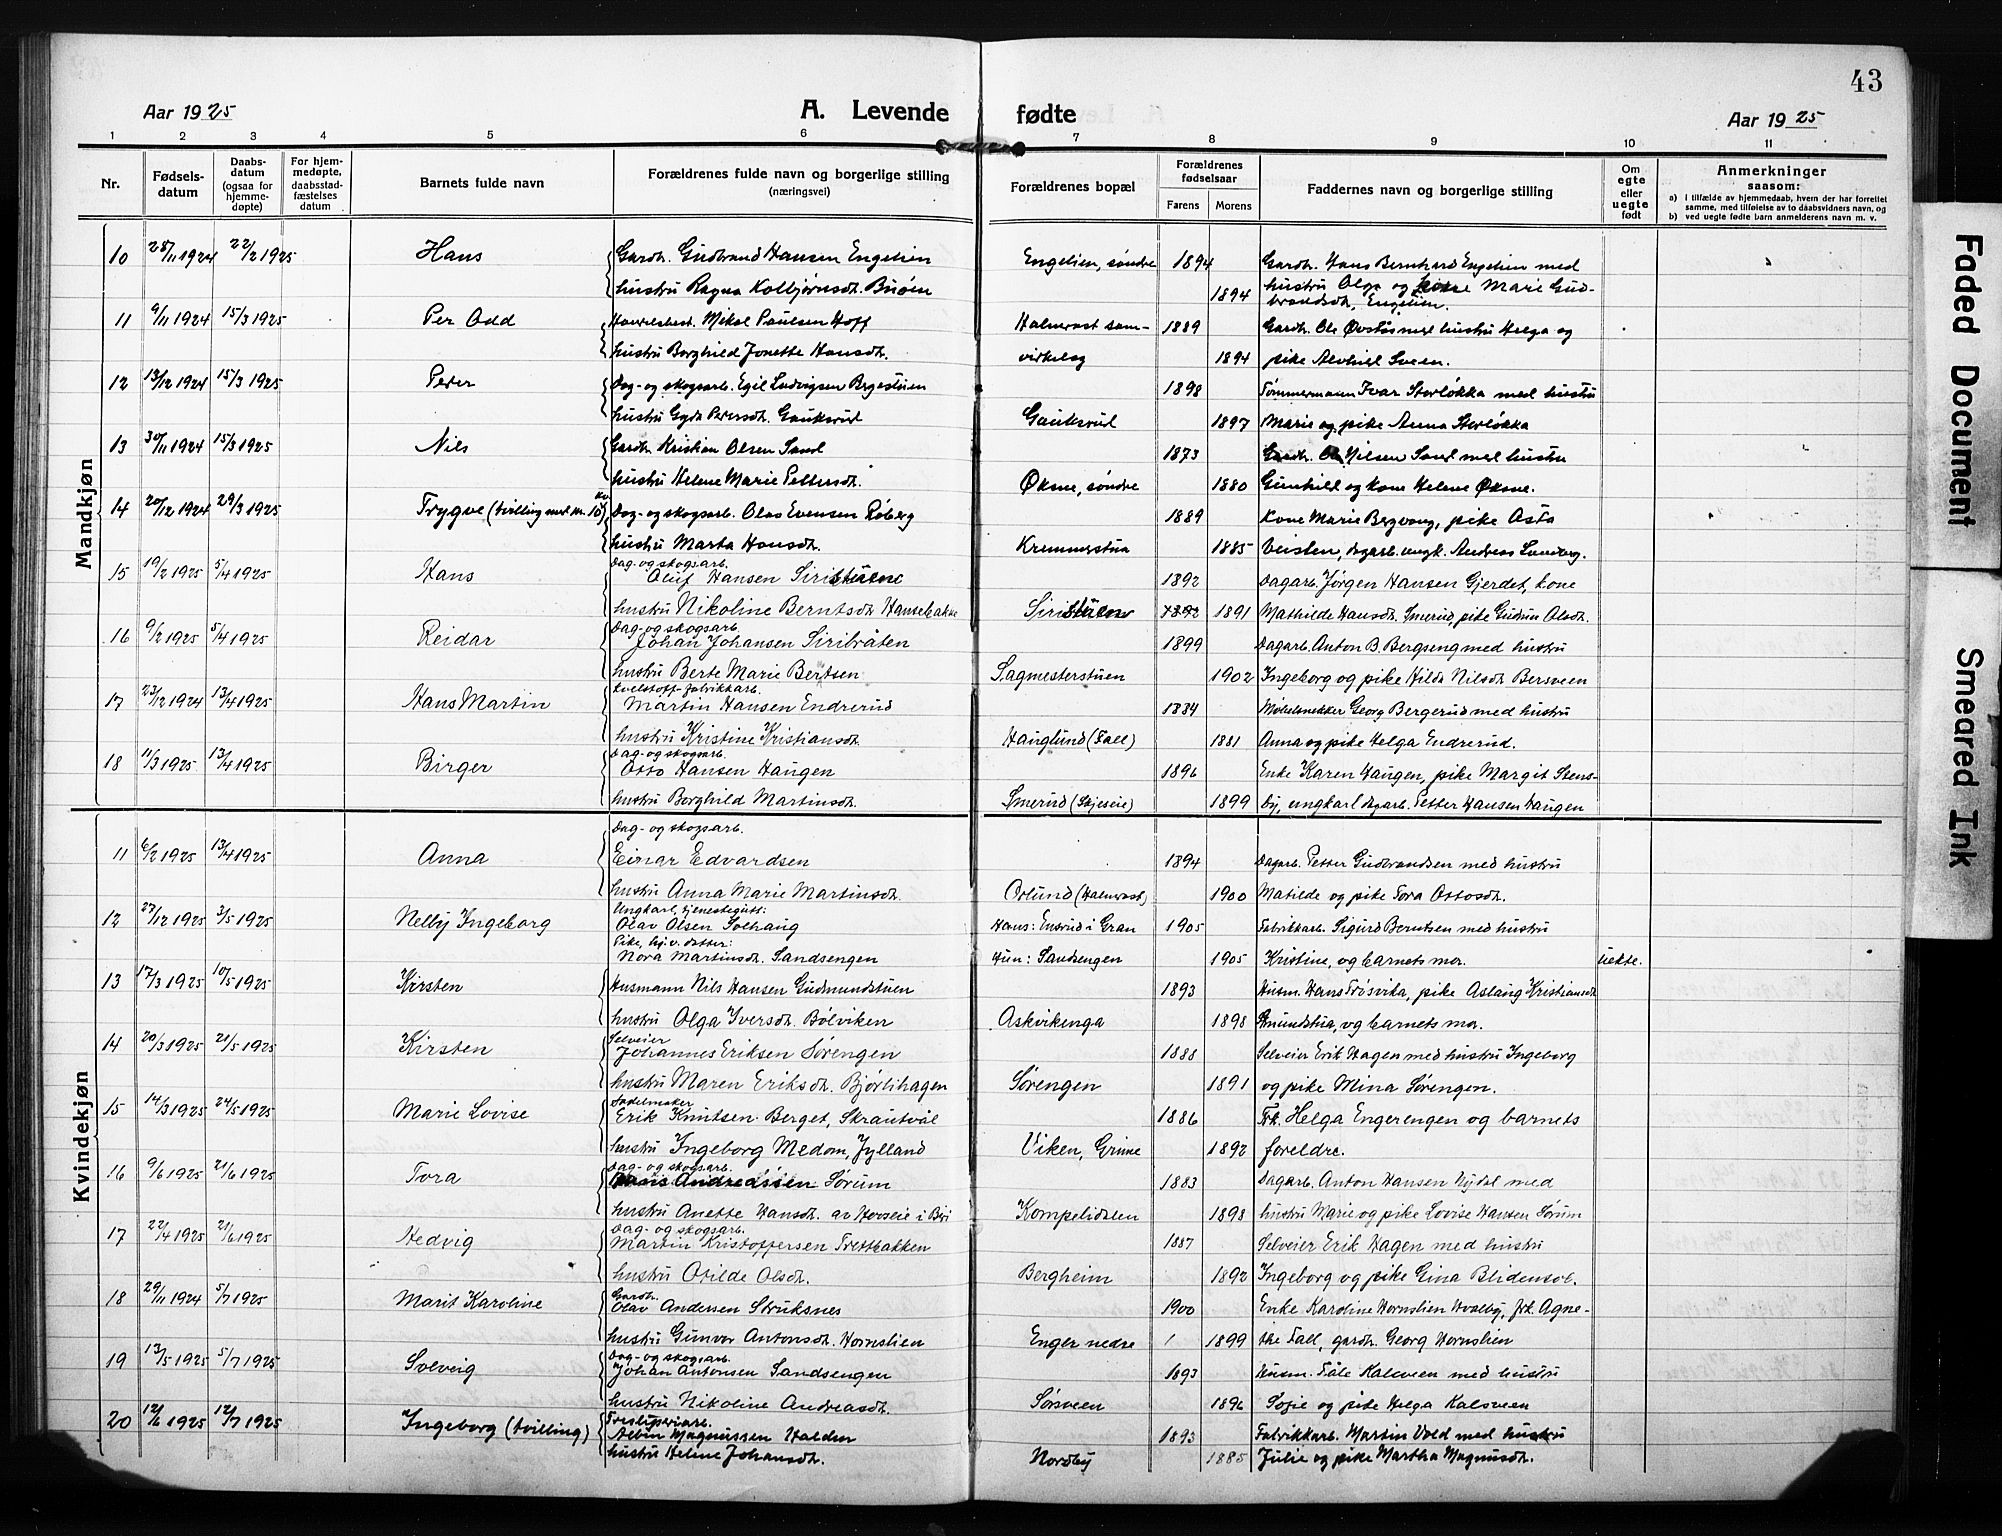 43
Aar 1925 A. Levende fødte Aar 1925
1 2 3 4 5 6 7 8 9 10 11
Nr.
Fødsels-
datum
Daabs-
datum
(ogsaa for
hjemme-
døpte)
For hjem-
medøpte,
daabsstad-
fæstelses
datum
Barnets fulde navn
Forældrenes fulde navn og borgerlige stilling
(næringsvei)
Forældrenes bopæl
Forældrenes
fødselsaar
Farens Morens
Faddernes navn og borgerlige stilling
Om
egte
eller
uegte
født
Anmerkninger
saasom:
a) i tilfælde av hjemmedaab, hvem der har forrettet
samme, med tilføielse av to daabsvidners navn, og
b) ved uegte fødte barn anmelderens navn m. v.
Mandkjøn
10 28/11 1924 22/2 1925 Hans Gardb. Gudbrand Hansen Engelien Engelien, søndre 1894 Gardb. Hans Bernhard Engelien med
hustru Ragna Kolbjørnsdt. Buöen 1894 hustru Olga og Marie Gud-
brandsdt. Engelien.
11 9/11 1924 15/3 1925 Per Odd Mikal Paulsen Hoff Halmrast sam- 1889 Gardb. Ole Øvstås med hustru Helga og
hustru Borghild Jonette Hansdt. virkelag 1894 pike Alvhild Sveen.
12 13/12 1924 15/3 1925 Peter Dag- og skogsarb. Egil Ludvigsen Bergestuen 1898 Tømmermann Ivar Storløkka med hustru
hustru Gyda Petersdt. Gauksrud Gauksrud 1897 Marie og pike Anna Storløkka
13 30/11 1924 15/3 1925 Nils Gardb. Kristian Olsen Sand 1873 Gardb. Ole Nilsen Sand med hustru
hustru Helene Marie Pettersdt. Øksne, søndre 1880 Gunhild og kone Helene Øksne.
14 20/12 1924 29/3 1925 Trygve (tvilling med nr. 10 kv.) Dag- og skogsarb. Olas Evensen Røberg 1889 Kone Marie Bergvang, pike Asta
hustru Marta Hansdt. Kremmerstua 1885 Veisten, dagarb. ungk. Andreas Lundberg.
15 19/2 1925 5/4 1925 Hans Dag- og skogsarb.
Oluf Hansen Siristuene 1892 Dagarb. Jørgen Hansen Gjerdet, kone
hustru Nikoline Berntsdt. Hansebakke Siristuene 1892 1891 Mathilde Hansdt. Smerud, pike Gudrun Olsdt.
16 9/2 1925 5/4 1925 Reidar Dag- og skogsarb.
Johan Johansen Siribråten 1899 Dagarb. Anton B. Bergseng med hustru
hustru Berte Marie Bertsen Sagmesterstuen 1902 Ingeborg og pike Hilda Nilsdt. Bersveen
17 23/12 1924 13/4 1925 Hans Martin Kvelstoff-fabrikkarb.
Martin Hansen Endrerud 1884 Møbelsnekker Georg Bergerud med hustru
hustru Kristine Kristiansdt. Hauglund (Fall) 1881 Anna og pike Helga Endrerud.
18 11/3 1925 13/4 1925 Birger Dag- og skogsarb.
Otto Hansen Haugen 1896 Enke Karen Haugen, pike Margit Stens-
hustru Borghild Martinsdt. Smerud (Skjeseie) 1899 by, ungkarl dagarb. Petter Hansen Haugen
Kvindekjøn
11 6/2 1925 13/4 1925 Anna Dag- og skogsarb.
Einar Edvardsen 1894 Dagarb. Petter Gudbrandsen med hustru
hustru Anna Marie Martinsdt. Orlund (Halmrast) 1900 Matilde og pike Tora Ottosdt.
12 27/12 1924 3/5 1925 Nelby Ingeborg Ungkarl, tjenestegutt:
Olav Olsen Solhaug Hans: Ensrud i Gran 1905 Fabrikkarb. Sigurd Berntsen med hustru
Pike, hjv. datter:
Nora Martinsdt. Sandsengen Hun: Sandsengen 1905 Kristine, og barnets mor. uekte.
13 17/3 1925 10/5 1925 Kirsten Husmann Nils Hansen Gudmundstuen 1893 Husm. Hans Frösvika, pike Aslaug Kristiansdt.
hustru Olga Iversdt. Bölviken Askvikenga 1898 Amundstua, og barnets mor.
14 20/3 1925 21/5 1925 Kirsten Selveier
Johannes Eriksen Sørengen 1888 Selveier Erik Hagen med hustru Ingeborg
hustru Maren Eriksdt. Bjørlihagen Sørengen 1891 og pike Mina Sørengen.
15 14/3 1925 24/5 1925 Marie Lovise Sadelmaker
Erik Knutsen Berget, Skrautvål 1886 Frk. Helga Engerengen og barnets
hustru Ingeborg Medom, Jylland Viken, Grime 1892 foreldre.
16 9/6 1925 21/6 1925 Tora Dag- og skogsarb.
Andreassen Sørum 1883 Dagarb. Anton Hansen Nydal med
hustru Anette Hansdt. av Hovseie i Biri Kompelidalen 1898 hustru Marie og pike Lovise Hansen Sørum
17 22/4 1925 21/6 1925 Hedvig Dag- og skogsarb.
Martin Kristoffersen Trettbakken 1887 Selveier Erik Hagen med hustru
hustru Otilde Olsdt. Bergheim 1892 Ingeborg og pike Gina Blidensol.
18 29/11 1924 5/7 1925 Marit Karoline Gardb.
Olav Andersen Struksnes 1900 Enke Karoline Hornslien Hvalby, frk. Agne-
hustru Gunvor Antonsdt. Hornslien Enger nedre 1899 the Fall, gardb. Georg Hornslien
19 13/5 1925 5/7 1925 Solveig Dag- og skogsarb.
Johan Antonsen Sandsengen 1893 Husm. Påle Kalsveen med hustru
hustru Nikoline Andreasdt. Sørsveen 1896 Sofie og pike Helga Kalsveen
20 12/6 1925 12/7 1925 Ingeborg (tvilling) Tresliperiarb.
Albin Magnussen Halden 1893 Fabrikkarb. Martin Vold med hustru
hustru Helene Johansdt. Nordby 1885 Julie og pike Martha Magnusdt.
Faded Document
Smeared Ink